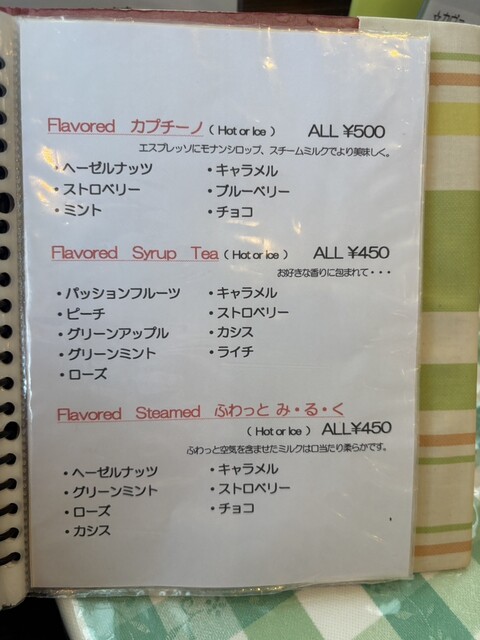 Flavored カプチーノ ( Hot or Ice ) ALL ¥500
エスプレッソにモナンシロップ、スチームミルクでより美味しく。
・ヘーゼルナッツ ・キャラメル
・ストロベリー ・ブルーベリー
・ミント ・チョコ
Flavored Syrup Tea ( Hot or Ice ) ALL ¥450
お好きな香りに包まれて・・・
・パッションフルーツ ・キャラメル
・ピーチ ・ストロベリー
・グリーンアップル ・カシス
・グリーンミント ・ライチ
・ローズ
Flavored Steamed ふわっと み・る・く
( Hot or Ice ) ALL¥450
ふわっと空気を含ませたミルクは口当たり柔らかです。
・ヘーゼルナッツ ・キャラメル
・グリーンミント ・ストロベリー
・ローズ ・チョコ
・カシス